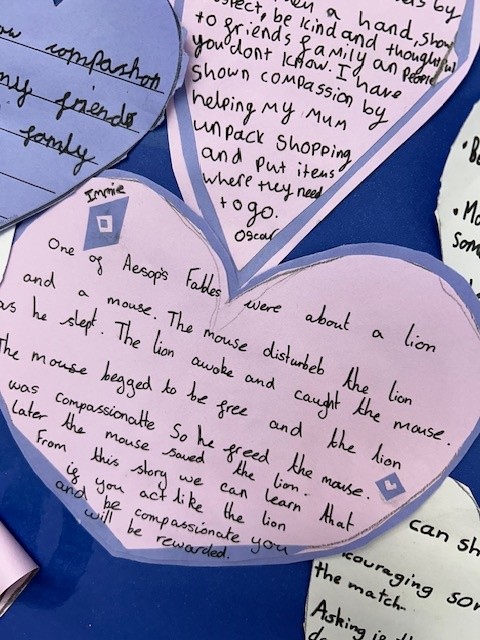 compashon
my friends
family
a hand, show
be kind and thoughtful
to friends family an People
you dont know. I have
shown compassion by
helping my mum
unpack shopping
and put items
where they need
to go.
Oscar
Immie
One of Aesop's Fables were about a lion
and a mouse. The mouse disturbeb the lion
as he slept. The lion awoke and caught the mouse.
The mouse begged to be free and the lion
was compassionatte So he greed the mouse.
Later the mouse saved the lion.
From this story we can learn that
if you act like the lion
and be compassionate you
will be rewarded.
can sh
couraging som
the match.
Asking is th